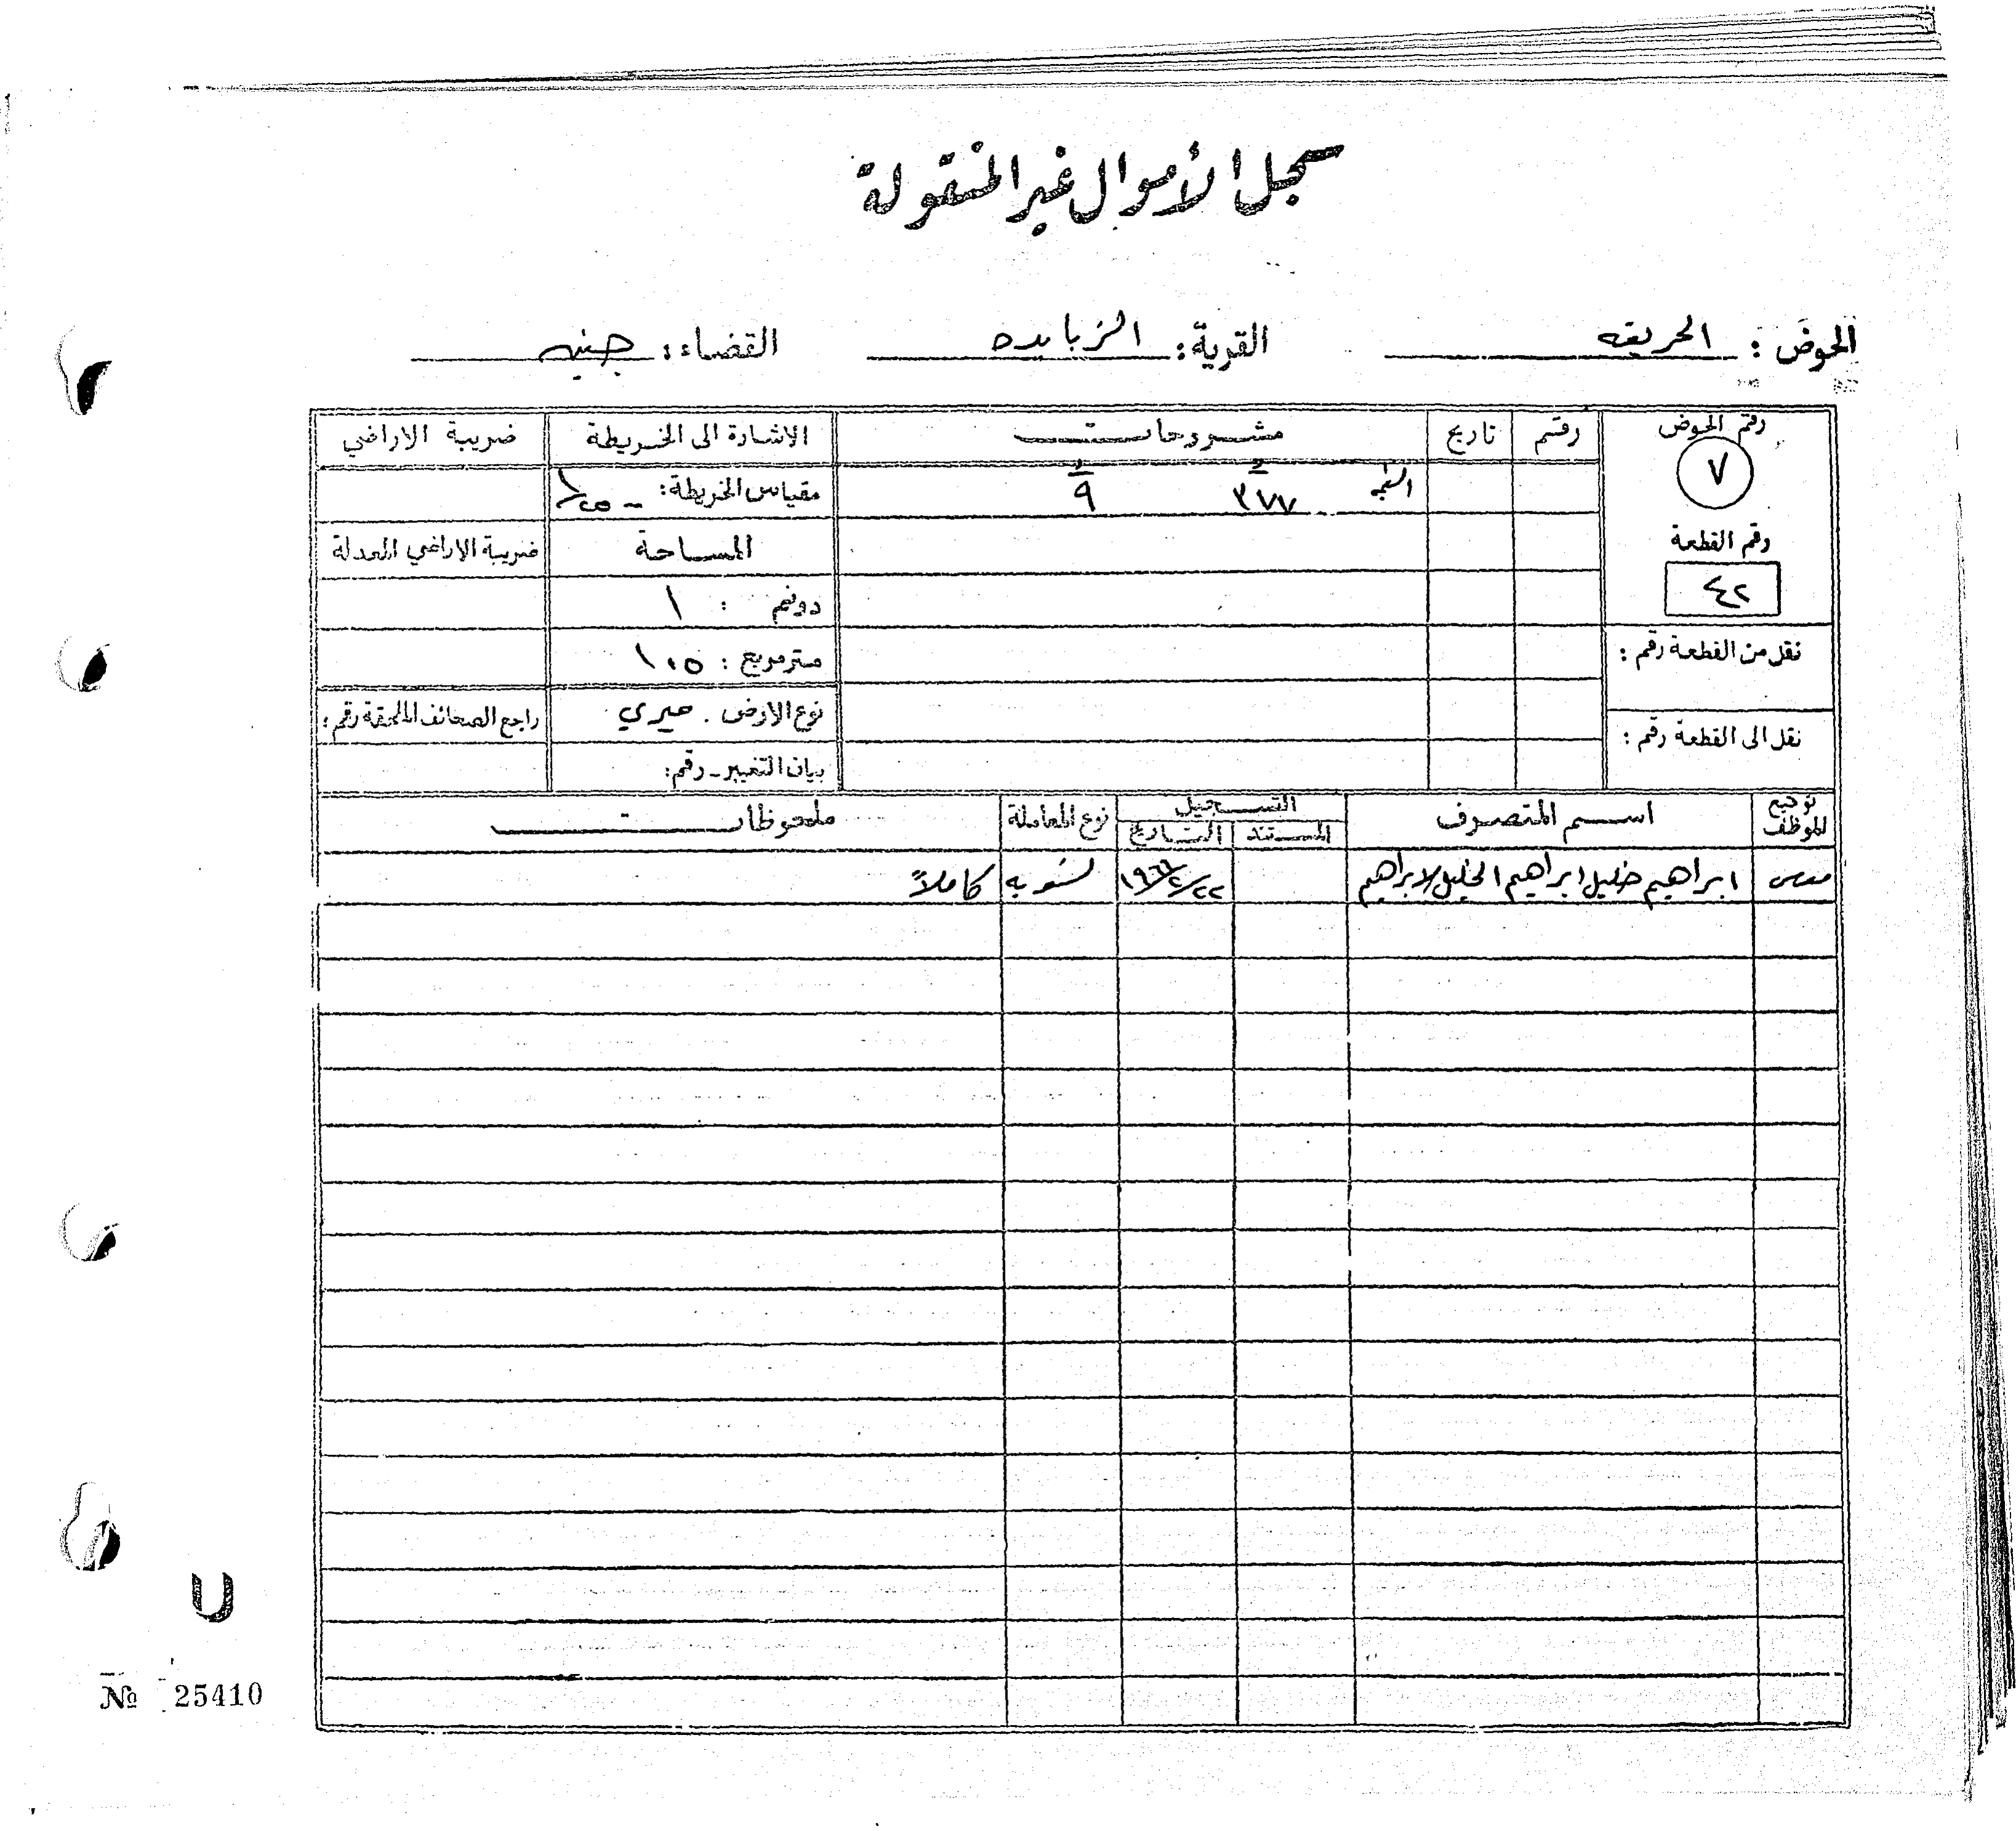 سجل الأموال غير المنقولة
الحوض : الحريقه القرية : الزبابده القضاء : جنين
رقم الحوض رقم تاريخ مشروحات الاشارة الى الخريطة ضريبة الاراضي
٧ ٣٧٧ ٩ مقياس الخريطة : ١/٢٥٠٠
رقم القطعة المساحة ضريبة الاراضي المعدلة
٤٢ دونم : ١
نقل من القطعة رقم : متر مربع : ١٠٥
نوع الارض . ميري راجع الصحائف الملحقة رقم :
نقل الى القطعة رقم : بيان التغيير - رقم :
توقيع الموظف اسم المتصرف التسجيل نوع المعاملة ملحوظات
المستند التاريخ
ابراهيم خليل ابراهيم الخليل الابراهيم ٢٢/٢/١٩٦٦ تسويه كاملاً
U
№ 25410